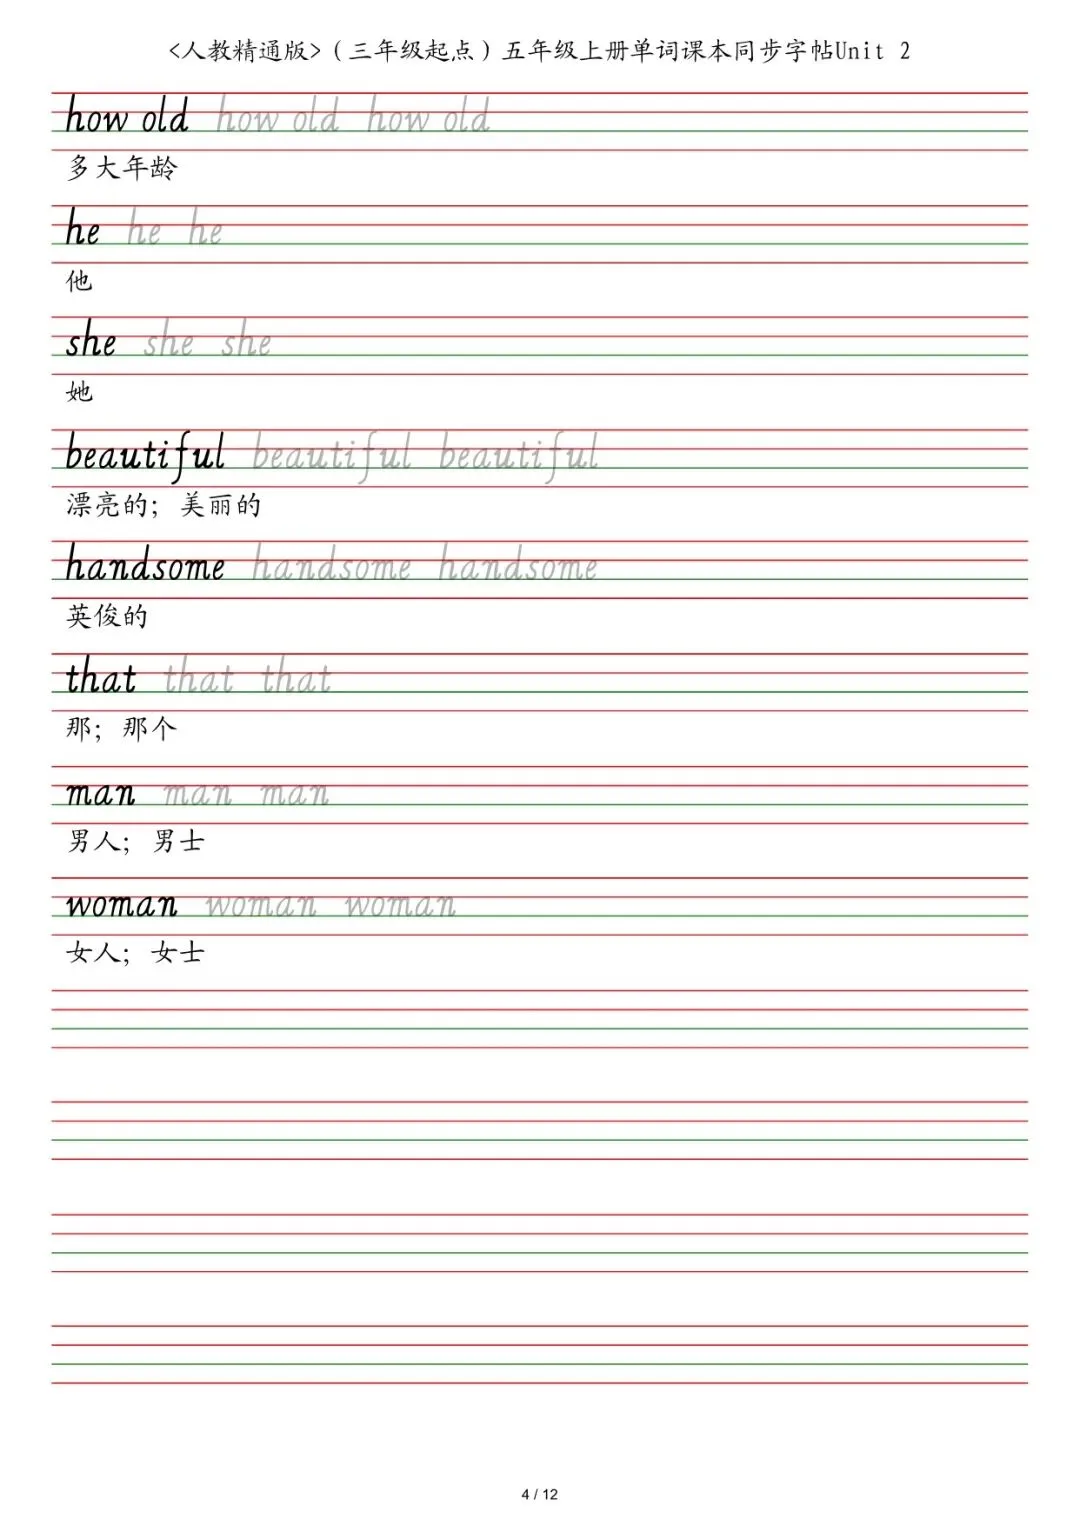 <人教精通版>(三年级起点)五年级上册单词课本同步字帖Unit 2
how old how old how old
多大年龄
he he he
他
she she she
她
beautiful beautiful beautiful
漂亮的；美丽的
handsome handsome handsome
英俊的
that that that
那；那个
man man man
男人；男士
woman woman woman
女人；女士
4 / 12